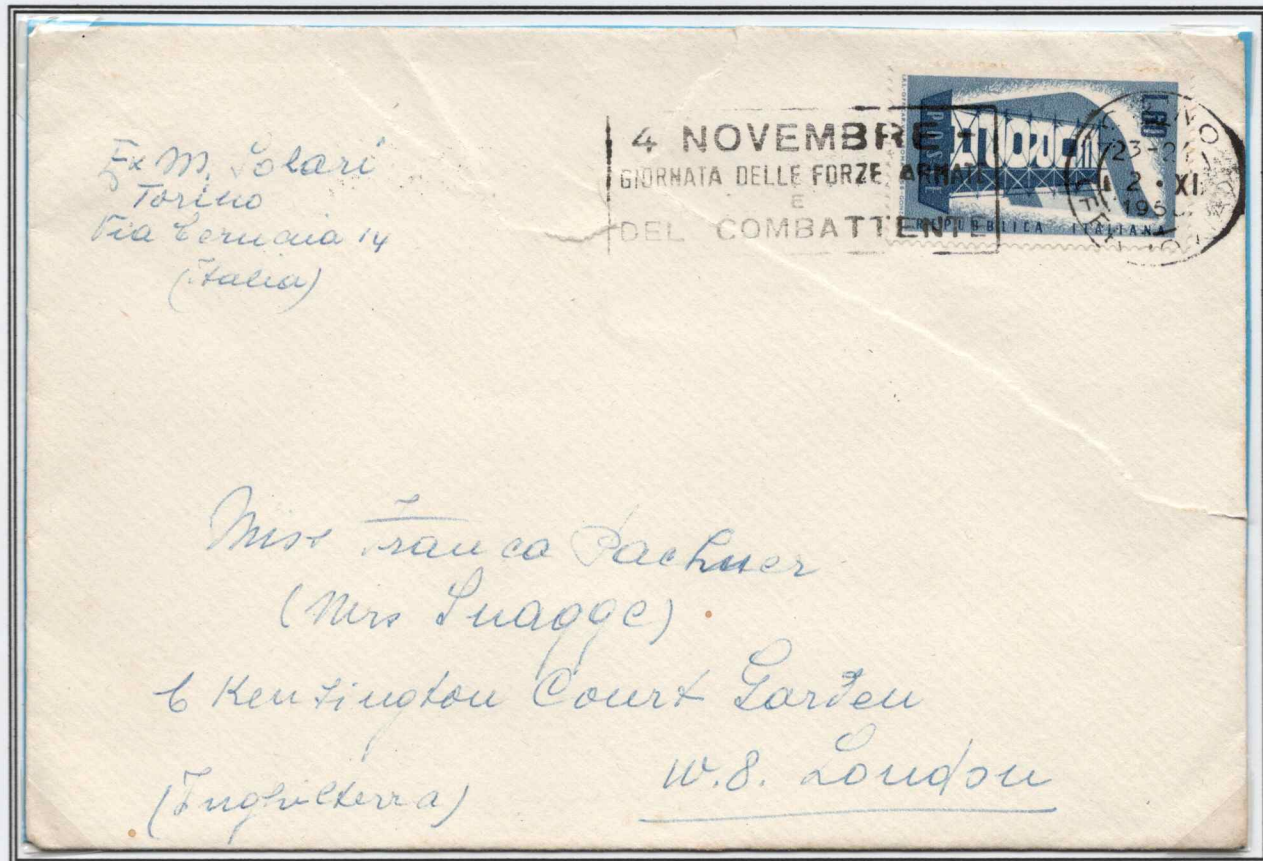 Ex M. Solari
Torino
Via Cernaia 14
(Italia)
4 NOVEMBRE -
GIORNATA DELLE FORZE ARMATE
E
DEL COMBATTENTE
L.60
POSTE
EUROPA
REPUBBLICA ITALIANA
23-24
2 • XI
Miss Franca Pachner
(Mrs Snagge)
6 Kensington Court Garden
W.8. London
(Inghilterra)